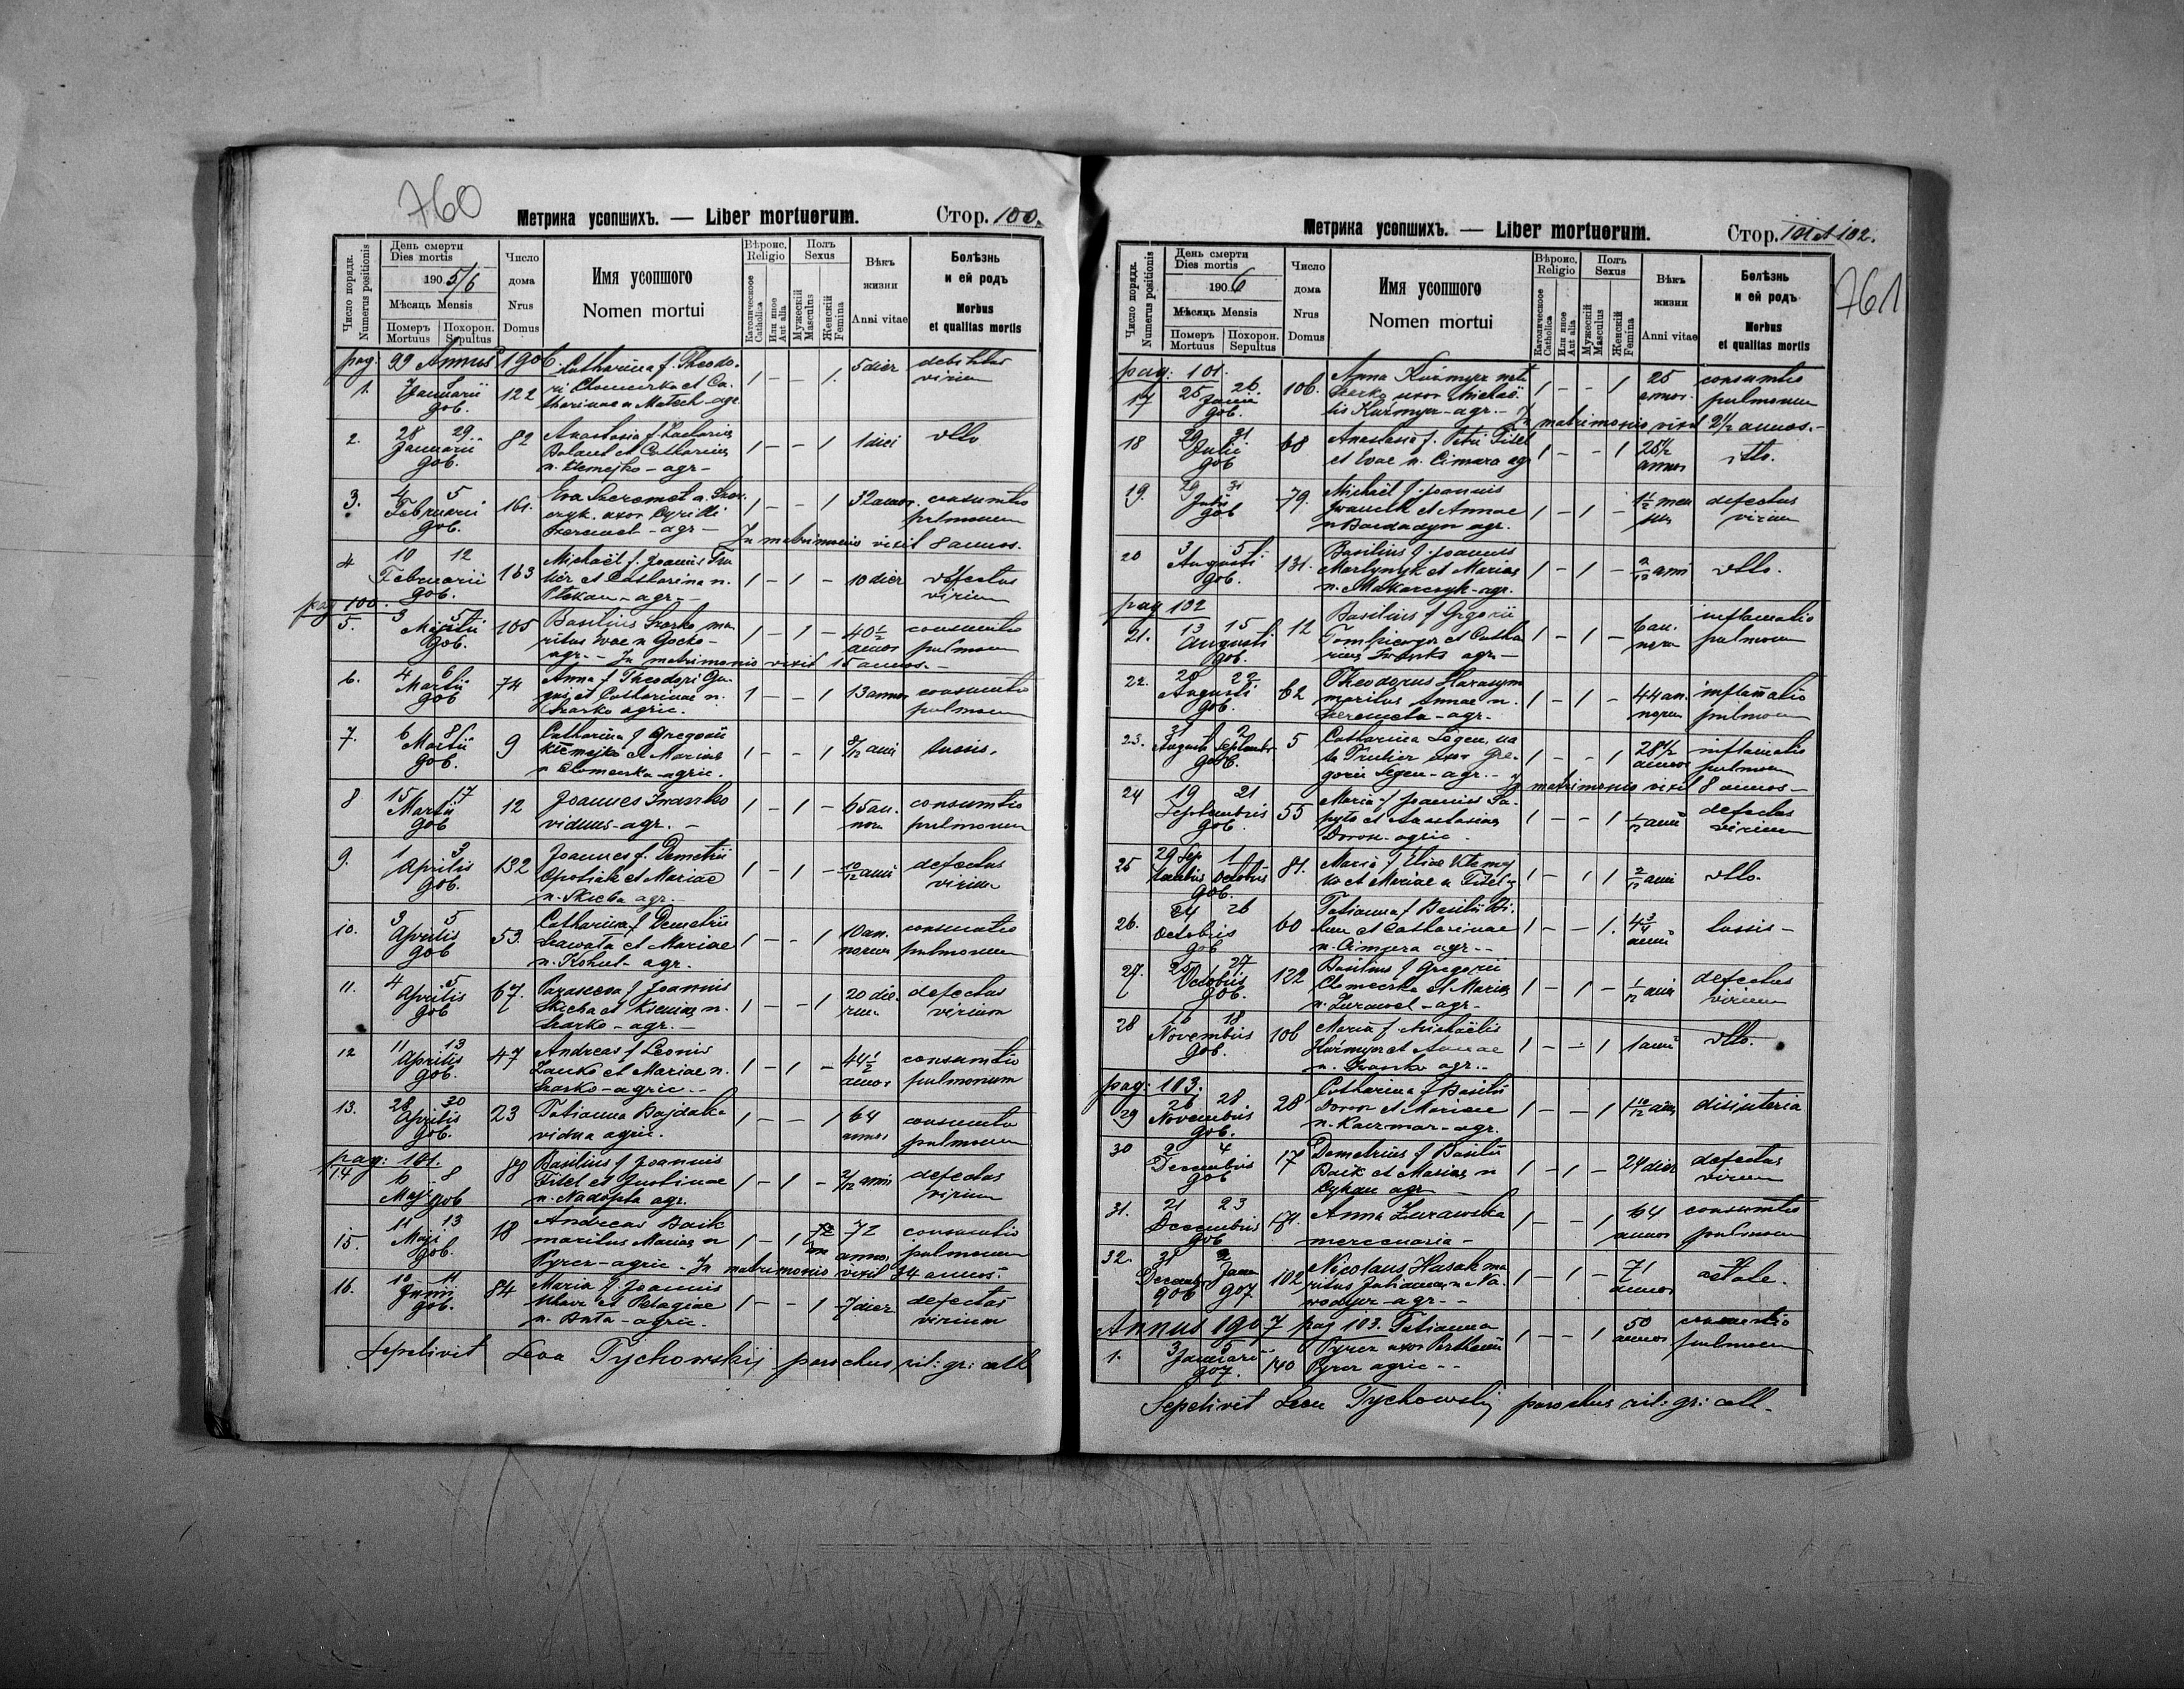 760
Метрика усопшихъ. — Liber mortuorum.
Стор. 100.
Число порядк.
Numerus positionis
День смерти
Dies mortis
1905/6
Мѣсяць Mensis
Померъ
Mortuus
Похорон.
Sepultus
Число
дома
Nrus
Domus
Имя усопшого
Nomen mortui
Вѣроис.
Religio
Католическоое
Catholica
Или иное
Aut alia
Полъ
Sexus
Мужескій
Masculus
Женскій
Femina
Вѣкъ
жизни
Anni vitae
Болѣзнь
и ей родъ
Morbus
et qualitas mortis
pag: 99 Annus 1906.
1. Januarii 906. 122 Catharina f. Theodo-
ri et Ca-
tharinae n. agr. 1 – – 1. 5 dier debilitas
virium
2. 28 29. Januarii 906. 82 Anastasia f.
et Catharinae
n. – agr – 1 – – 1 1 diei dtto
3. 4 5 Februarii 906. 161. Eva Szeremet n.
uxor Cyrilli
Szeremet – agr – 1 – – 1 32 annor. consumtio
pulmonum
In matrimonio vixit 8 annos.
4 10 12 Februarii 906. 163 Michaël f. Joannis
et Catharina n.
– agr. – 1 – 1 – 10 dier defectus
virium
pag 100.
5. 3 5 Martii 906. 105 Basilius Szarko ma-
ritus Evae n
agr. – In matrimonio vixit 15 annos. – 1 – 1 – 40 1/2
annor consumtio
pulmonum
6. 4 6 Martii 906 74 Anna f Theodori
et Catharinae n.
Szarko agric. 1 – – 1 13 annor consumtio
pulmonum
7. 6 8 Martii 906. 9 Catharina f Gregorii
et Mariae
n – agric. 1 – – 1 8/12 anni tussis.
8 15 17 Martii 906 12 Joannes Iwanko
viduus – agr. – 1 – 1 – 65 an-
nor consumtio
pulmonum
9. 1 3 Aprilis 906. 132 Joannes f. Demetrii
et Mariae
n. Skicba agr. – 1 – 1 – 10/12 anni defectus
virium
10. 3 5 Aprilis 906 53. Catharina f Demetrii
et Mariae
n. Kohut – agr. 1 – – 1 10 an-
norum consumtio
pulmonum
11. 4 5 Aprilis 906 67. Parasceva f Joannis
et n.
Szarko – agr. – 1 – – 1 20 die-
rum defectus
virium
12 11 13 Aprilis 906. 47 Andreas f Leonis
et Mariae n.
Szarko – agric. – 1 – 1 – 44 1/2
annor consumtio
pulmonum
13. 28 30 Aprilis 906. 23 Tatianna Bajdaka
vidua agric. 1 – – 1 64
annor consumtio
pulmonum
pag: 101.
14 6 8 Maji 906 88 Basilius f Joannis
Titel et Justinae
n. agr. 1 – 1 – 2/12 anni defectus
virium
15. 11 13 Maji 906. 18 Andreas Baik
maritus Mariae n
Pyrcz – agric – In matrimonio vixit 34 annos. 1 – 1 72
annor consumtio
pulmonum
16. 10 11 Junii 906. 84 Maria f Joannis
et Pelagiae
n. – agric. 1 – – 1 7 dier defectus
virium
Sepelivit Leon Tychowskij parochus rit: gr: cath
Метрика усопшихъ. — Liber mortuorum.
Стор. 101 et 102.
761
Число порядк.
Numerus positionis
День смерти
Dies mortis
1906
Мѣсяць Mensis
Померъ
Mortuus
Похорон.
Sepultus
Число
дома
Nrus
Domus
Имя усопшого
Nomen mortui
Вѣроис.
Religio
Католическоое
Catholica
Или иное
Aut alia
Полъ
Sexus
Мужескій
Masculus
Женскій
Femina
Вѣкъ
жизни
Anni vitae
Болѣзнь
и ей родъ
Morbus
et qualitas mortis
pag: 101.
17 25 26 Junii 906. 106. Anna Kuźmyn nata
Szarko uxor Michaë-
lis Kuźmyn – agr. – 1 – – 1 25
annor. consumtio
pulmonum
In matrimonio vixit 2 1/2 annos. –
18 29 31 Julii 906 68 Anastasia f. Petri Titel
et Evae n. Cimara agr 1 – – 1 25 1/2
annor dtto.
19. 29 31 Julii 906 79. Michaël f. Joannis
et Annae
n agr. 1 – 1 – 1 1/2 men
defectus
virium
20 3 5 Augusti 906. 131. Basilius f. Joannis
Martynyk et Mariae
n. Makarczyk – agr. 1 – 1 – 2/12 anni dtto.
pag 102
21. 13 15 Augusti 906. 12 Basilius f Grgorii
et Catha
rinae Iwanko agr – 1 – 1 – 6 an-
norum inflamatio
pulmonum
22. 20 22 Augusti 906. 62 Theodorus Harasym
maritus Annae n.
Szeremeta – agr. – 1 – 1 – 44 an-
norum inflamatio
pulmonum
23. 31 2 Augusti Septembr 906. 5 Catharina Legen na
ta uxor Gre-
gorii Legen – agr. – 1 – – 1 28 1/2
annor inflamatio
pulmonum
In matrimonio vixit 8 annos –
24 19 21 Septembris 906. 55 Maria f Joannis
et Anastasiae
Doron – agric – 1 – – 1 1/12 anni defectus
virium
25 29 Sep 1 tembris Octobris 906. 81. Maria f Eliae
et Mariae n Titel 1 – 1 1 2/12 anni dtto.
26. 24 26 Octobris 906 60 Tatianna f Basilii
et Catharinae
n. agr. – 1 – – 1. 4 3/4
anni tussis –
27. 25 27 Octobris 906. 122 Basilius f Gregorii
et Mariae
n. Zurawel – agr – 1 – 1 – 1/12 anni defectus
virium
28 16 18 Novembris 906. 106 Maria f. Michaëlis
Kuźmyn et Annae
n. Szarko agr. – 1 – – 1 1 anni dtto.
pag: 103.
29 26 28 Novembris 906. 28 Catharina f Basilii
Doron et Mariae
n. Kaczmar – agr. 1 – – 1 1 10/12 anni disinteria
30 2 4 Decembris 906 17 Demetrius f Basilii
Baik et Mariae n
Cyhan agr – 1 – 1 – 24 dier defectus
virium
31. 21 23 Decembris 906 181. Anna Zurawska
mercenaria – 1 – – 1 64
annor consumtio
pulmonum
32. 31 2 Decembr Janu 906 907 102 Nicolaus Hasak ma
ritus Julianae n Na-
– agr – 1 – 1 – 71
annor aetate.
Annus 1907 pag 103.
1. 3 5 Januarii 907. 140 Tatianna
Pyrcz uxor Parthenii
Pyrcz agric – 1 – – 1 50
annor consumtio
pulmonum
Sepelivit Leon Tychowskij parochus rit: gr: cath.